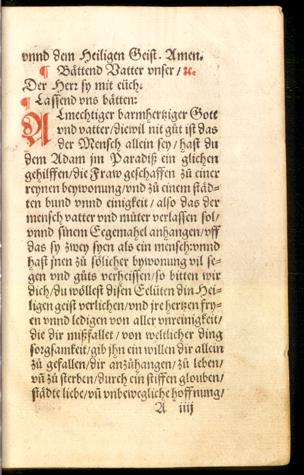 vnnd dem Heiligen Geist. Amen.
¶ Bättend Vatter vnser / ꝛc.
Der Herr sy mit eüch.
¶ Lassend vns bätten:
ALmechtiger barmhertziger Gott
vnd vatter / diewil nit gůt ist das
der Mensch allein sey / hast du
dem Adam jm Paradiß ein glichen
gehilffen / die Fraw geschaffen zů einer
reynen beywonung / vnd zů einem städ-
ten bund vnnd einigkeit / also das der
mensch vatter vnd můter verlassen sol /
vnnd sinem Eegemahel anhangen / vff
das sy zwey syen als ein mensch: vnnd
hast jnen zů sölicher bywonung vil se-
gen vnd gůts verheissen / so bitten wir
dich / du wöllest disen Eelüten din Hei-
ligen geist verlichen / vnd jre hertzen fry-
en vnnd ledigen von aller vnreinigkeit /
die dir mißfallet / von weltlicher ding
sorgsamkeit / gib jhn ein willen dir allein
zů gefallen / dir anzůhangen / zů leben /
vn̄ zů sterben / durch ein stiffen glouben /
städte liebe / vn̄ vnbewegliche hoffnung /
A iiij